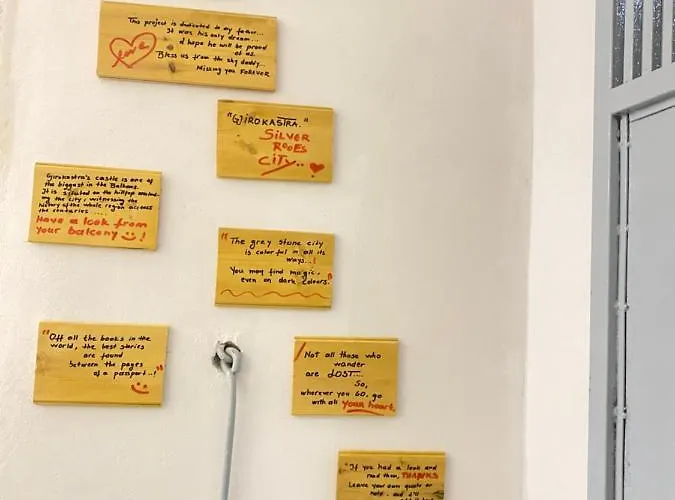 This project is dedicated to my father...
It was his only dream...
I hope he will be proud
of us.
Bless us from the sky daddy...
Missing you FOREVER
LOVE
"GJIROKASTRA."
SILVER
ROOFS
CITY..
Gjirokastra's castle is one of
the biggest in the Balkans.
It is situated on the hilltop
the city, witnessing the
history of the whole region across
the centuries ....
Have a look from
your balcony !
"The grey stone city
is colorful in all its
ways..!
You may find magic.
even on dark colours."
"Off all the books in the
world, the best stories
are found
between the pages
of a passport..!"
Not all those who
wander
are LOST...
So,
wherever you GO, go
with all your heart.
"If you had a look and
read them, THANKS
Leave your own quote or
note. and